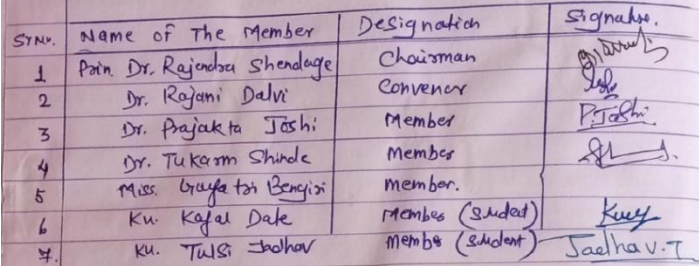 Sr Nr. Name of The Member Designation Signature.
1 Prin. Dr. Rajendra Shendage Chairman
2 Dr. Rajani Dalvi Convener
3 Dr. Prajakta Joshi Member P.Joshi
4 Dr. Tukarm Shinde Member
5 Miss. Gayatri Bengiri member.
6 Ku. Kajal Date Member (Student)
7. Ku. Tulsi Jadhav Member (Student) Jadhav.T